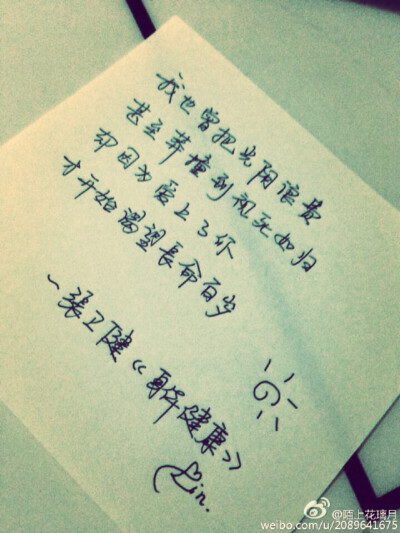 我也曾把光阴浪费
甚至莽撞到视死如归
却因为爱上了你
才开始渴望长命百岁
~张卫健《聊健康》
Lin.
@陌上花璃月
weibo.com/u/2089641675